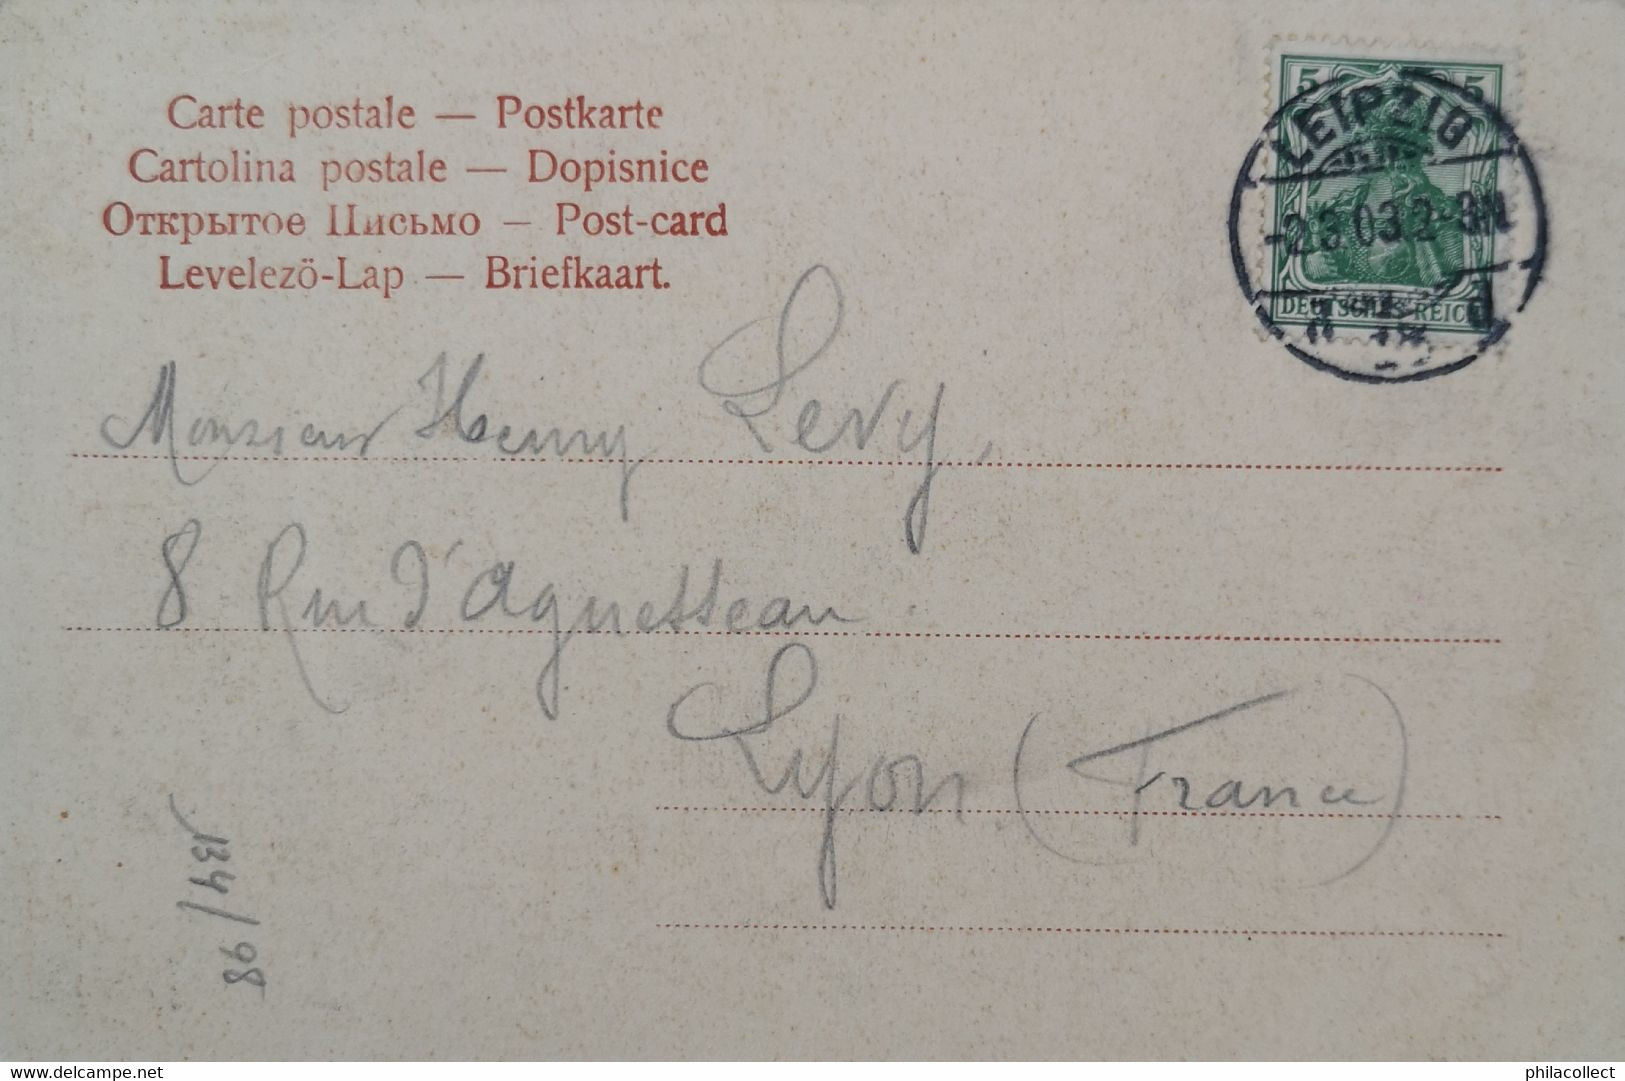 Carte postale — Postkarte
Cartolina postale — Dopisnice
Открытое Письмо — Post-card
Levelezö-Lap — Briefkaart.
5 5
DEUTSCHES REICH
LEIPZIG
-2.3.03.2-3N
Monsieur Henry Levy,
8 Rue d'Aguesseau.
Lyon. (France)
1344/98
delcampe.net
philacollect